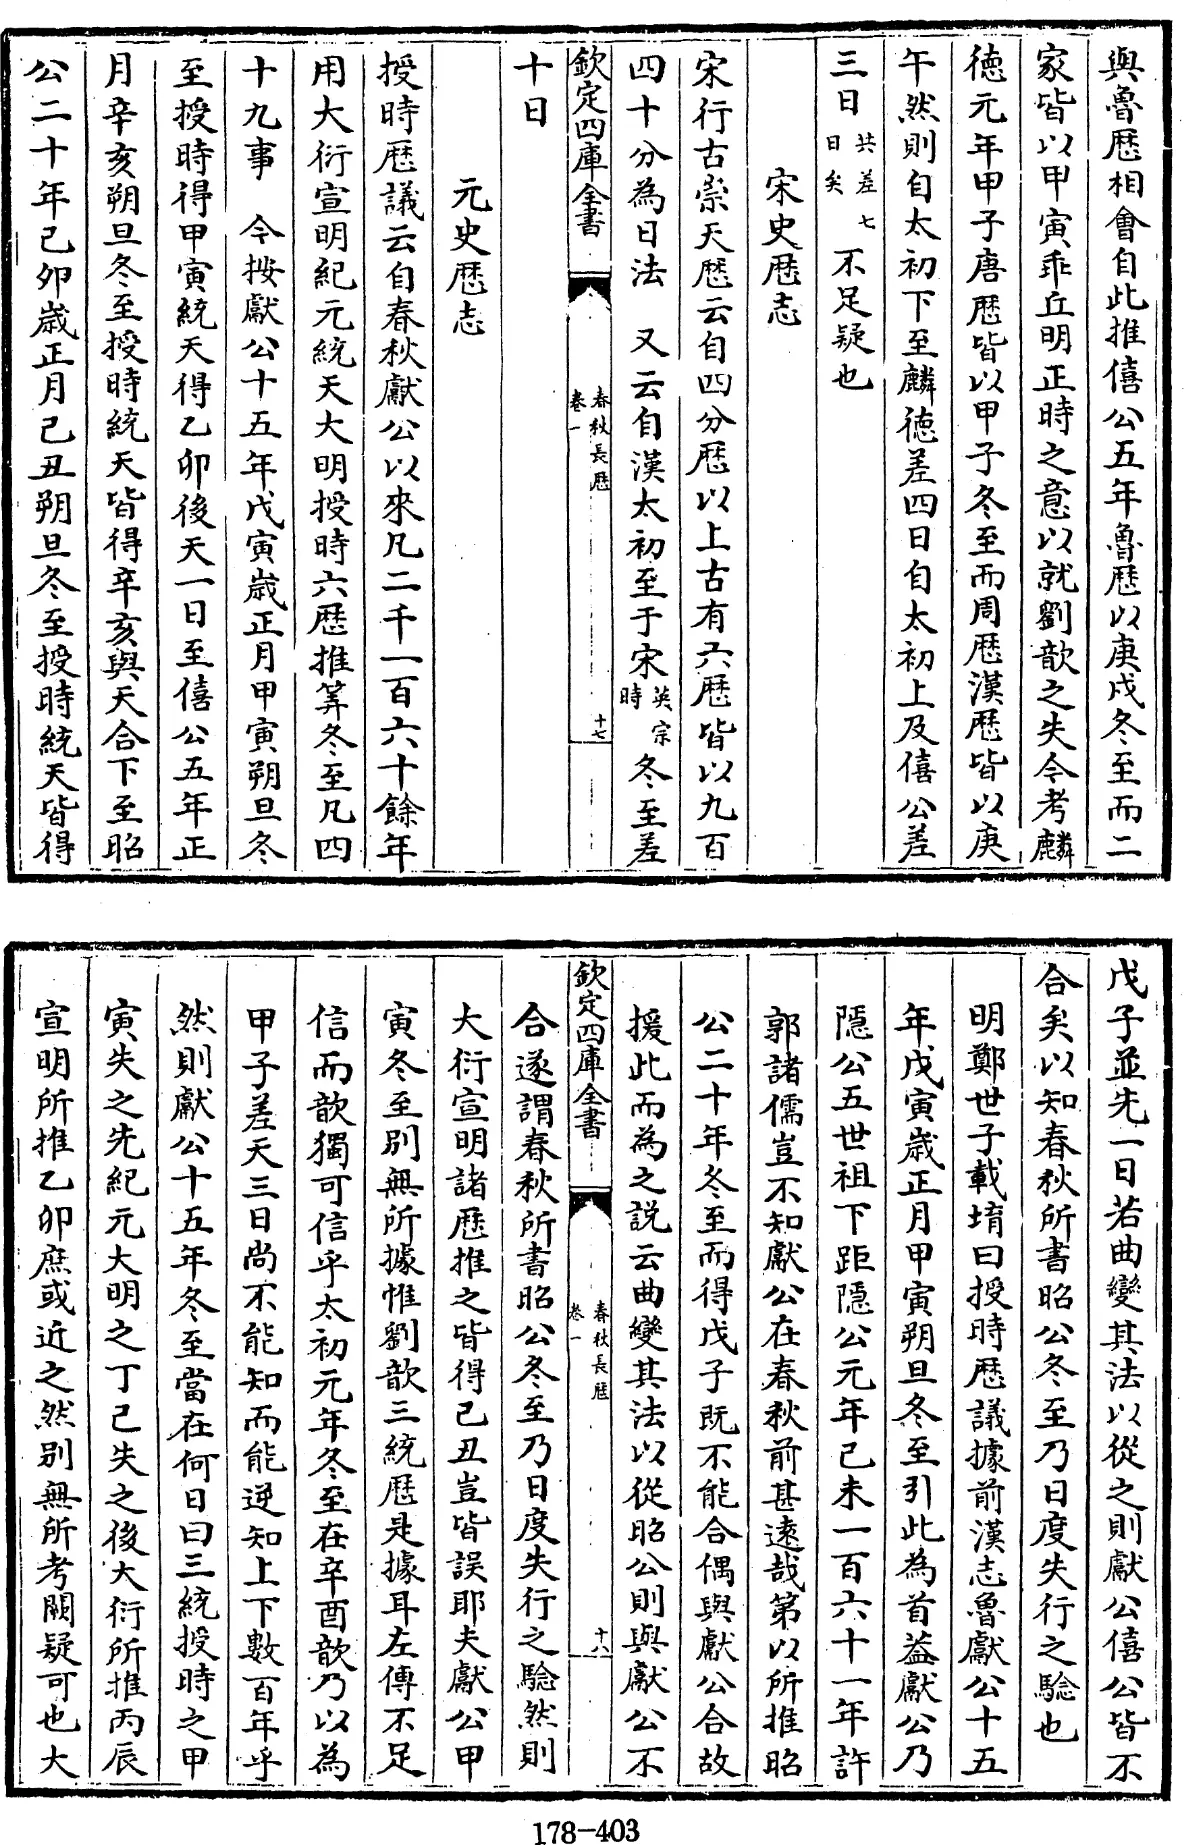 與魯歴相會自此推僖公五年魯歴以庚戌冬至而二
家皆以甲寅乖丘明正時之意以就劉歆之失今考麟
徳元年甲子唐歴皆以甲子冬至而周歴漢歴皆以庚
午然則自太初下至麟徳差四日自太初上及僖公差
三日共差七日矣不足疑也
宋史歴志
宋行古崇天歴云自四分歴以上古有六歴皆以九百
四十分為日法 又云自漢太初至于宋英宗時冬至差
欽定四庫全書
春秋長歴
卷一
十七
十日
元史歴志
授時歴議云自春秋獻公以來凡二千一百六十餘年
用大衍宣明紀元統天大明授時六歴推筭冬至凡四
十九事 今按獻公十五年戊寅歳正月甲寅朔旦冬
至授時得甲寅統天得乙卯後天一日至僖公五年正
月辛亥朔旦冬至授時統天皆得辛亥與天合下至昭
公二十年己卯歳正月己丑朔旦冬至授時統天皆得
戊子並先一日若曲變其法以從之則獻公僖公皆不
合矣以知春秋所書昭公冬至乃日度失行之驗也
明鄭世子載堉曰授時歴議據前漢志魯獻公十五
年戊寅歳正月甲寅朔旦冬至引此為首蓋獻公乃
隠公五世祖下距隠公元年己未一百六十一年許
郭諸儒豈不知獻公在春秋前甚逺哉第以所推昭
公二十年冬至而得戊子既不能合偶與獻公合故
援此而為之説云曲變其法以從昭公則與獻公不
欽定四庫全書
春秋長歴
卷一
十八
合遂謂春秋所書昭公冬至乃日度失行之驗然則
大衍宣明諸歴推之皆得己丑豈皆誤耶夫獻公甲
寅冬至別無所據惟劉歆三統歴是據耳左傳不足
信而歆獨可信乎太初元年冬至在辛酉歆乃以為
甲子差天三日尚不能知而能逆知上下數百年乎
然則獻公十五年冬至當在何日曰三統授時之甲
寅失之先紀元大明之丁己失之後大衍所推丙辰
宣明所推乙卯庶或近之然別無所考闕疑可也大
178-403